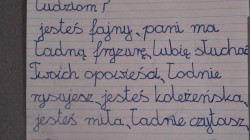 ludziom?
jesteś fajny, pani ma
ładną fryzurę, lubię słuchać
Twoich opowieści, ładnie
rysujesz, jesteś koleżeńska,
jesteś miła, ładnie czytasz